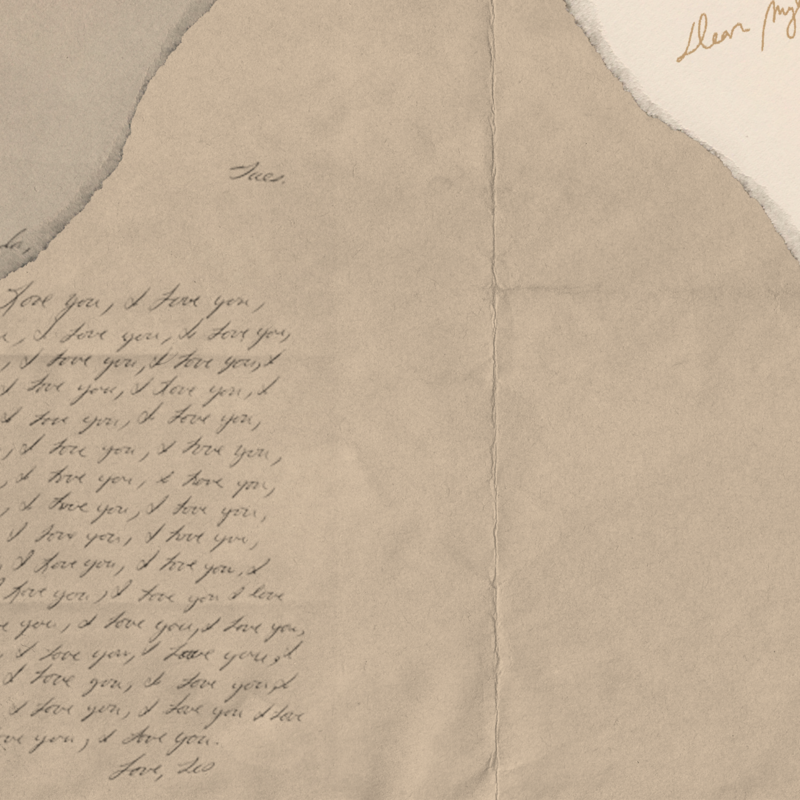 Dear
Tues.
Love you, I love you,
, I love you, I love you,
, I love you, I love you, I
I love you, I love you, I
I love you, I love you,
, I love you, I love you,
, I love you, I love you,
, I love you, I love you,
I love you, I love you,
, I love you, I love you, I
love you, I love you I love
you, I love you, I love you,
, I love you, I love you, I
I love you, I love you, I
I love you, I love you I love
you, I love you.
Love, Les